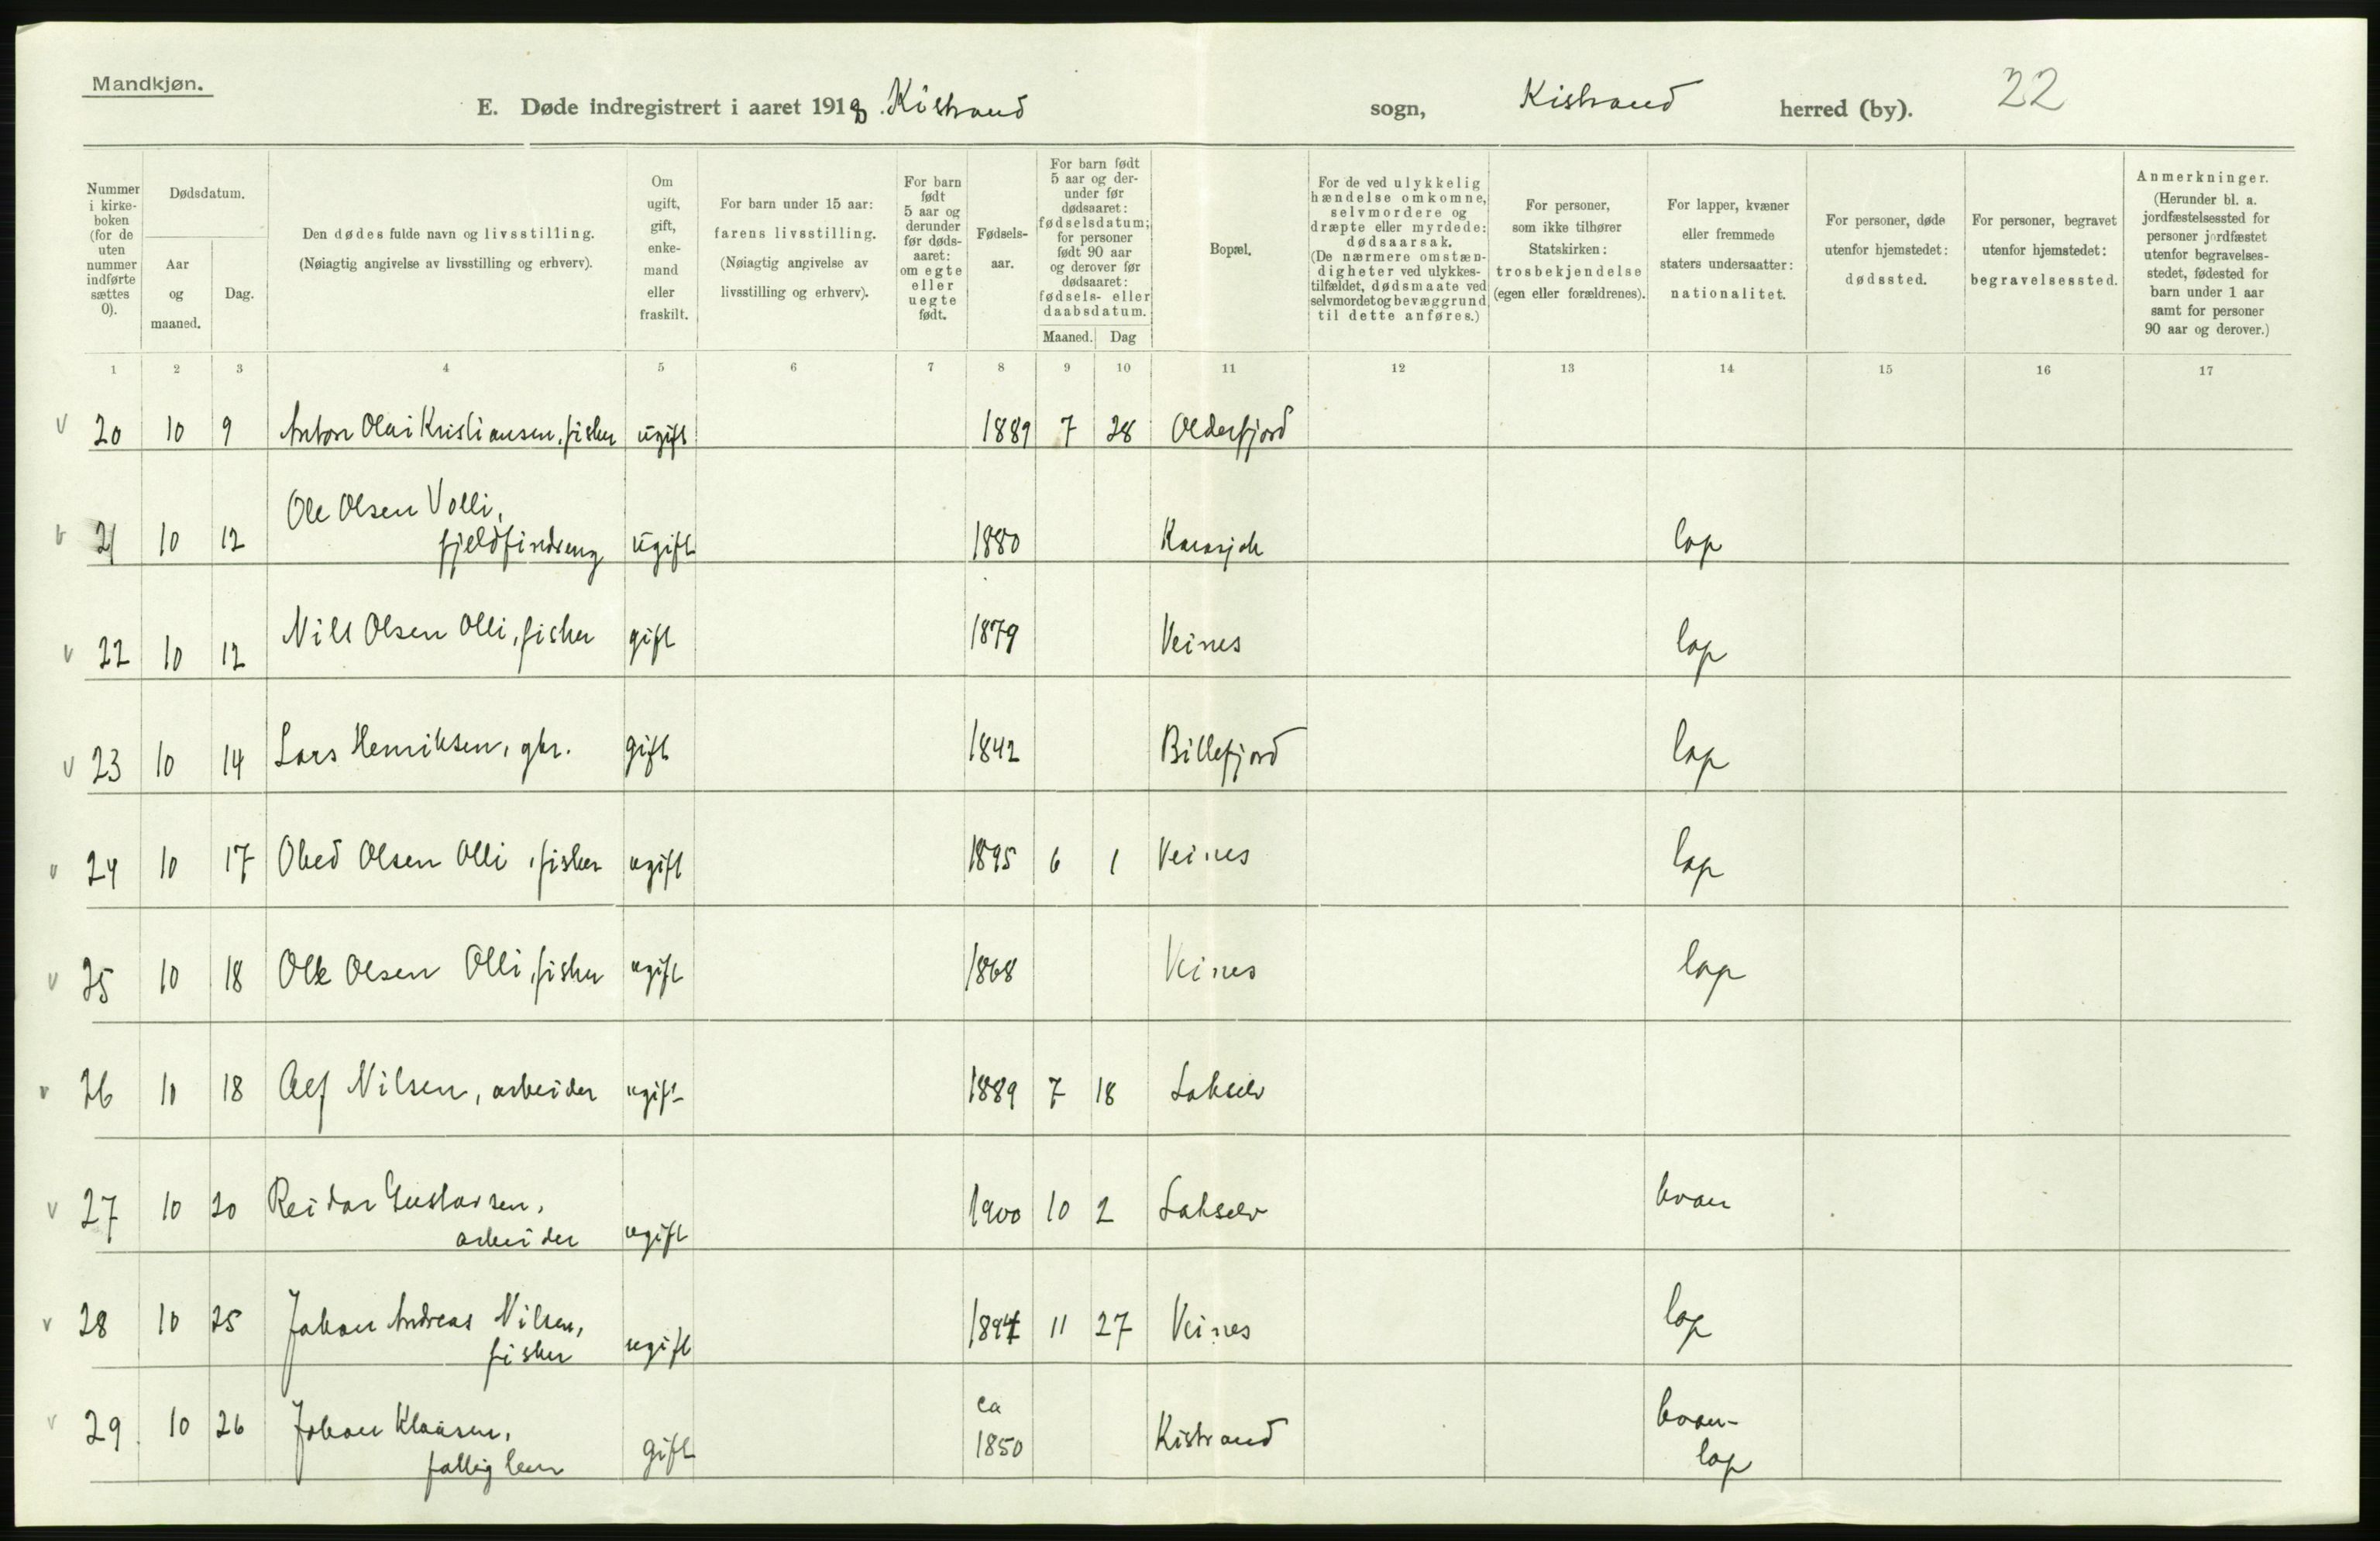 Mandkjøn.
E. Døde indregistrert i aaret 1918 Kistrand sogn, Kistrand herred (by). 22
Nummer i kirkeboken (for de uten nummer indførte sættes 0).
Dødsdatum.
Aar og maaned.
Dag.
Den dødes fulde navn og livsstilling.
(Nøiagtig angivelse av livsstilling og erhverv).
Om ugift, gift, enkemand eller fraskilt.
For barn under 15 aar: farens livsstilling.
(Nøiagtig angivelse av livsstilling og erhverv).
For barn født 5 aar og derunder før dødsaaret: om egte eller uegte født.
Fødselsaar.
For barn født 5 aar og derunder før dødsaaret: fødselsdatum; for personer født 90 aar og derover før dødsaaret: fødsels- eller daabsdatum.
Maaned. Dag
Bopæl.
For de ved ulykkelig hændelse omkomne, selvmordere og dræpte eller myrdede: dødsaarsak.
(De nærmere omstændigheter ved ulykkestilfældet, dødsmaate ved selvmordet og bevæggrund til dette anføres.)
For personer, som ikke tilhører Statskirken: trosbekjendelse (egen eller forældrenes).
For lapper, kvæner eller fremmede staters undersaatter: nationalitet.
For personer, døde utenfor hjemstedet: dødssted.
For personer, begravet utenfor hjemstedet: begravelsessted.
Anmerkninger.
(Herunder bl. a. jordfæstelsessted for personer jordfæstet utenfor begravelsesstedet, fødested for barn under 1 aar samt for personer 90 aar og derover.)
1 2 3 4 5 6 7 8 9 10 11 12 13 14 15 16 17
v 20 10 9 Anton Olai Kristiansen, fisker ugift 1889 7 28 Olderfjord
v 21 10 12 Ole Olsen Volli,
fjeldfindreng ugift 1880 Karasjok lap
v 22 10 12 Nils Olsen Olli, fisker gift 1879 Veines lap
v 23 10 14 Lars Henriksen, gbr. gift 1842 Billefjord lap
v 24 10 17 Obed Olsen Olli, fisker ugift 1895 6 1 Veines lap
v 25 10 18 Ole Olsen Olli, fisker ugift 1868 Veines lap
v 26 10 18 Alf Nilsen, arbeider ugift 1889 7 18 Lakselv
v 27 10 20 Reidar Gustavsen,
arbeider ugift 1900 10 2 Lakselv kvæn
v 28 10 25 Johan Andreas Nilsen,
fisker ugift 1894 11 27 Veines lap
v 29 10 26 Johan Klausen,
fattiglem gift ca
1850 Kistrand kvæn-
lap